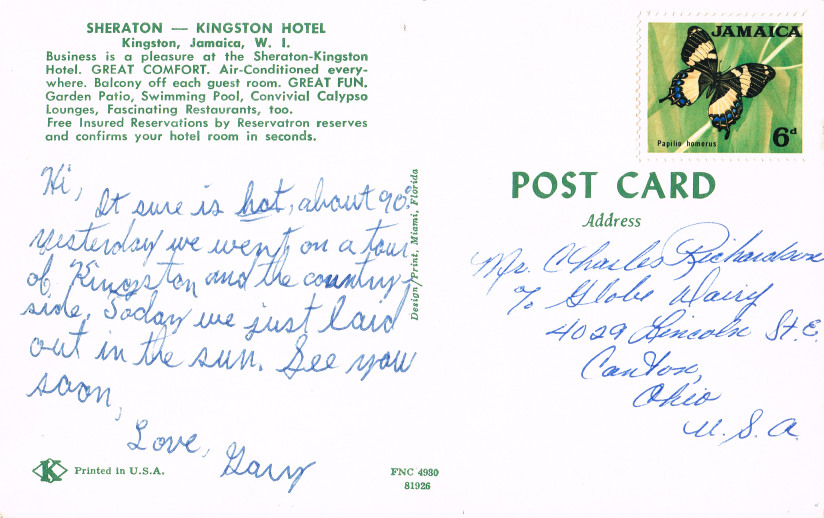 SHERATON — KINGSTON HOTEL
Kingston, Jamaica, W. I.
Business is a pleasure at the Sheraton-Kingston
Hotel. GREAT COMFORT. Air-Conditioned every-
where. Balcony off each guest room. GREAT FUN.
Garden Patio, Swimming Pool, Convivial Calypso
Lounges, Fascinating Restaurants, too.
Free Insured Reservations by Reservatron reserves
and confirms your hotel room in seconds.
Hi,
It sure is hot, about 90°.
Yesterday we went on a tour
of Kingston and the country-
side. Today we just laid
out in the sun. See you
soon,
Love, Gary
K
Printed in U.S.A.
FNC 4930
81926
Design/Print, Miami, Florida
JAMAICA
Papilio homerus
6d
POST CARD
Address
Mr. Charles Richardson
% Globe Dairy
4029 Lincoln St. E.
Canton,
Ohio
U. S. A.